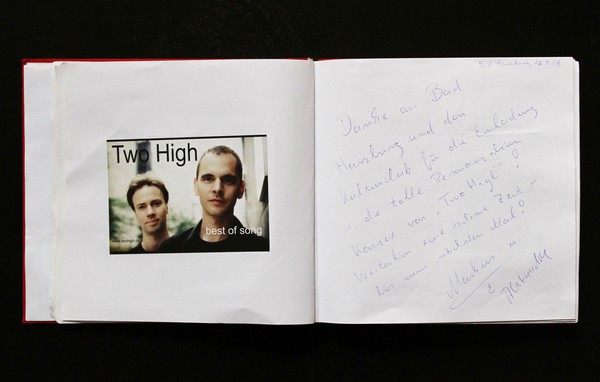 Two High
best of song
Danke an Bad
Harzburg und den
Kulturclub für die Einladung
u. die tolle Resonanz beim
Konzert von "Two High"!
Weiterhin eine schöne Zeit u.
bis zum nächsten Mal!
Markus u.